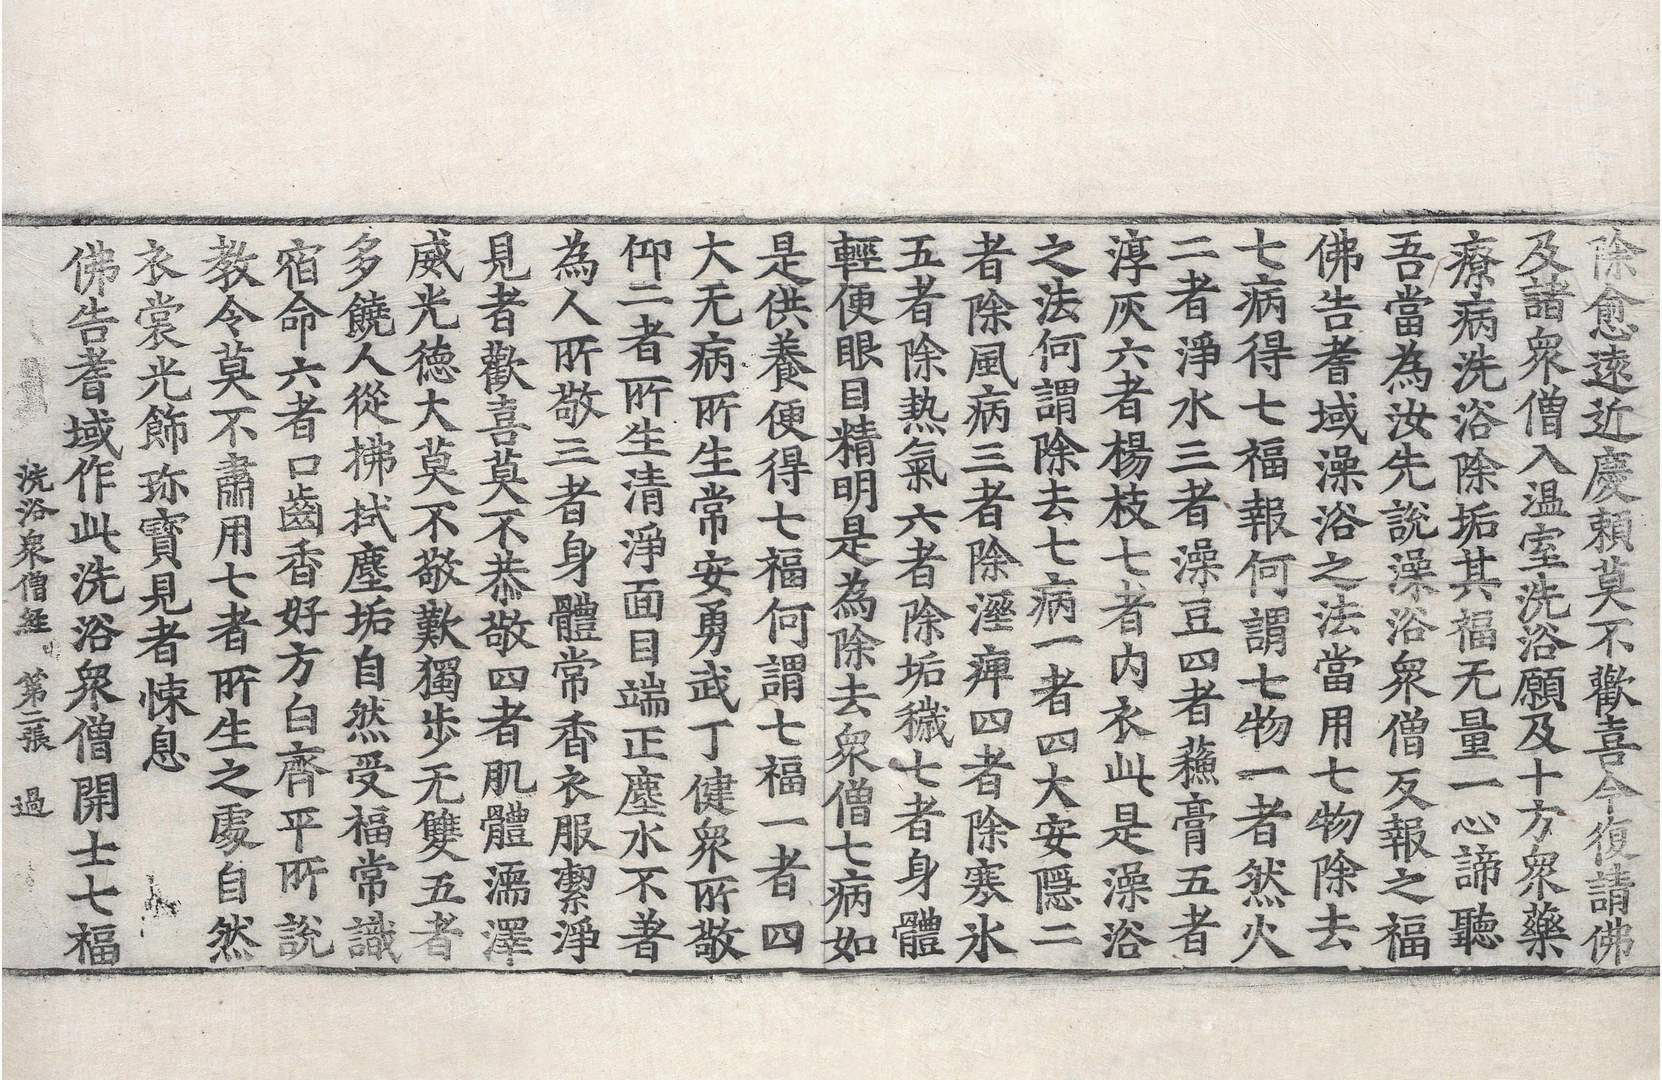 除愈遠近慶頼莫不歡喜今復請佛
及諸衆僧入温室洗浴願及十方衆藥
療病洗浴除垢其福无量一心諦聽
吾當為汝先說澡浴衆僧反報之福
佛告耆域澡浴之法當用七物除去
七病得七福報何謂七物一者然火
二者淨水三者澡豆四者蘓膏五者
淳灰六者楊枝七者內衣此是澡浴
之法何謂除去七病一者四大安隱二
者除風病三者除溼痺四者除寒氷
五者除熱氣六者除垢穢七者身體
輕便眼目精明是為除去衆僧七病如
是供養便得七福何謂七福一者四
大无病所生常安勇武丁健衆所敬
仰二者所生清淨面目端正塵水不著
為人所敬三者身體常香衣服潔淨
見者歡喜莫不恭敬四者肌體濡澤
威光德大莫不敬歎獨步无雙五者
多饒人從拂拭塵垢自然受福常識
宿命六者口齒香好方白齊平所說
教令莫不肅用七者所生之處自然
衣裳光飾珎寶見者悚息
佛告耆域作此洗浴衆僧開士七福
洗浴衆僧經 第二張 過